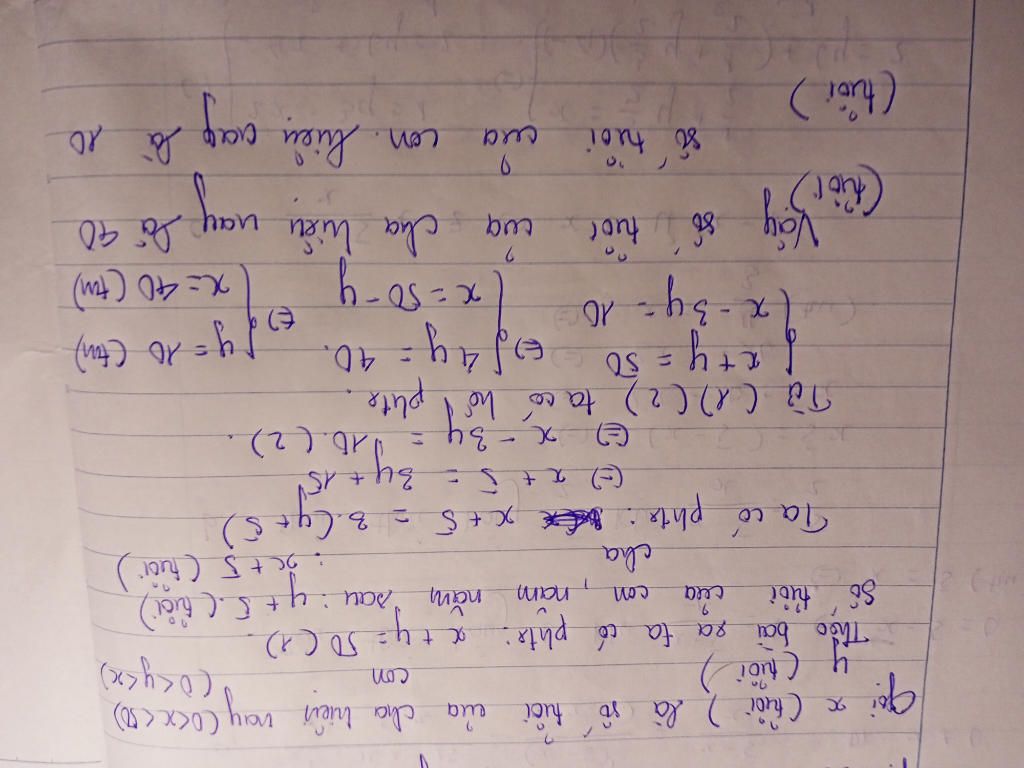 Gọi x (tuổi) là số tuổi của cha hiện nay (0<x<50)
y (tuổi) con (0<y<x)
Theo bài ra ta có phtr: x + y = 50 (1).
Số tuổi của con, năm năm sau: y + 5. (tuổi)
cha : x + 5 (tuổi)
Ta có phtr: x + 5 = 3.(y + 5)
(=) x + 5 = 3y + 15
(=) x - 3y = 10. (2).
Từ (1) (2) ta có hệ phtr.
{ x + y = 50 (=) { 4y = 40. (=) { y = 10 (tm)
x - 3y = 10 x = 50 - y x = 40 (tm)
Vậy số tuổi của cha hiện nay là 40
(tuổi)
số tuổi của con hiện nay là 10
(tuổi)